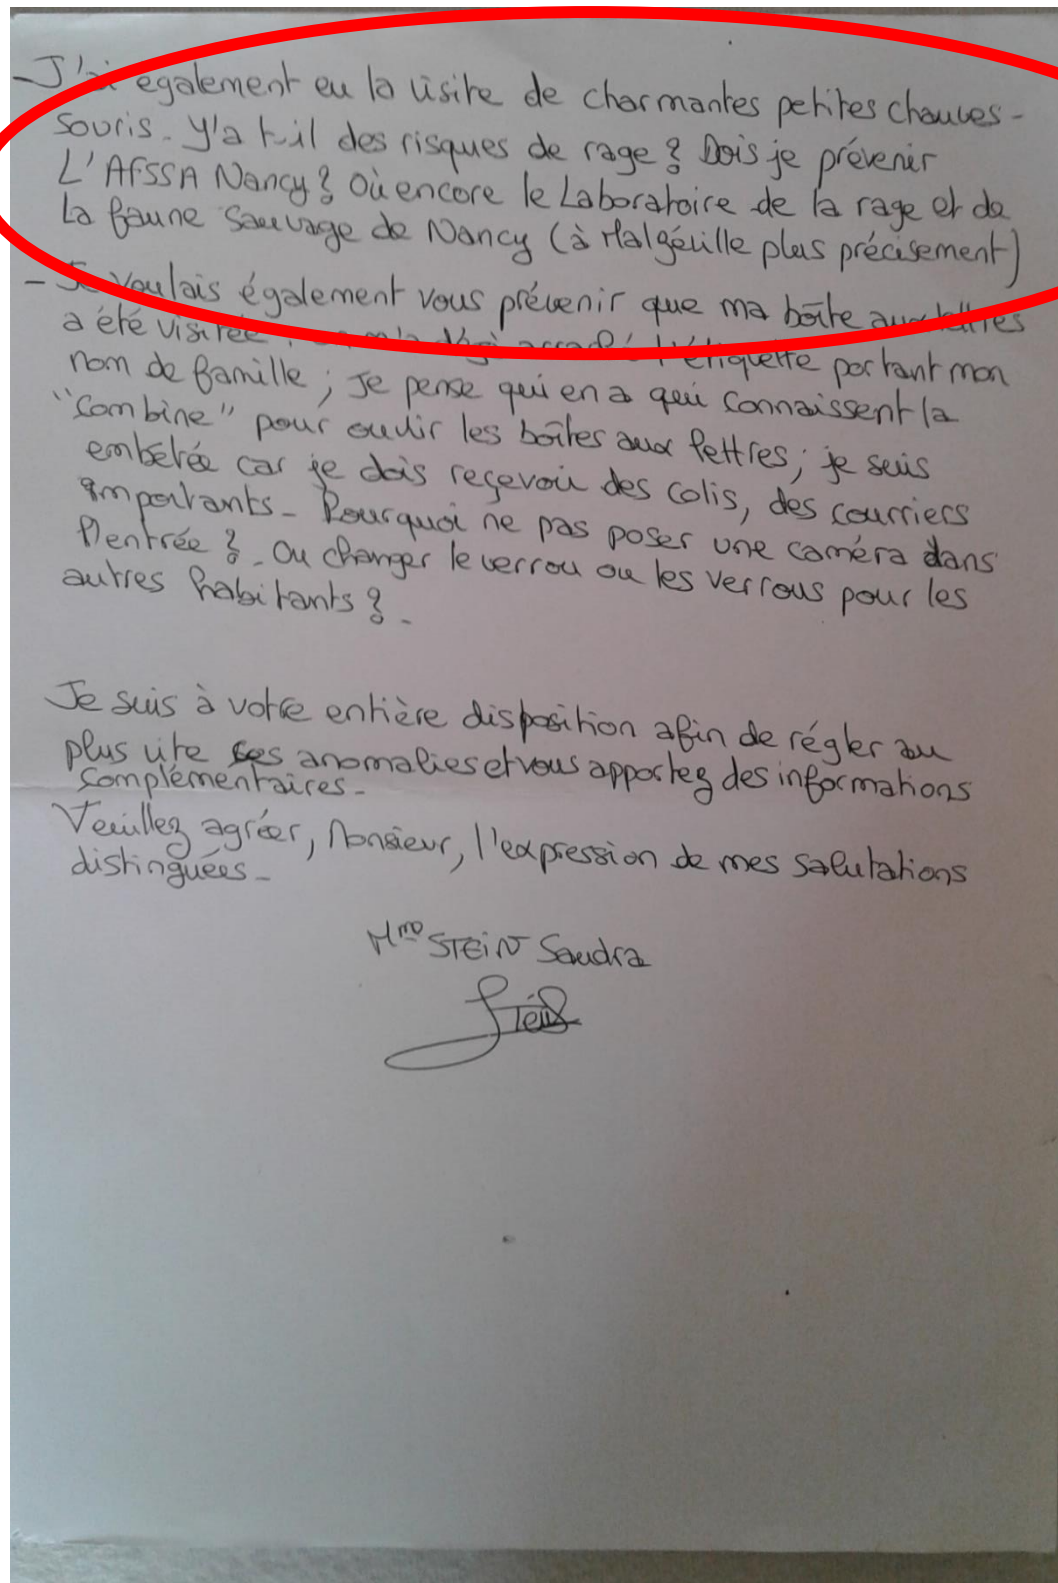 - J'ai egalement eu la visite de charmantes petites chauves-
souris. Y'a t-il des risques de rage ? Dois je prévenir
L'AFSSA Nancy ? Où encore le Laboratoire de la rage et de
La faune sauvage de Nancy (à Malzéville plus précisement)
- Je voulais également vous prévenir que ma boîte aux lettres
a été visitée, m'a déjà arraché l'étiquette portant mon
nom de famille ; Je pense qui en a qui connaissent la
"combine" pour ouvrir les boîtes aux lettres ; je suis
embêtée car je dois reçevoir des colis, des courriers
importants - Pourquoi ne pas poser une caméra dans
l'entrée ? - Ou changer le verrou ou les verrous pour les
autres habitants ? -
Je suis à votre entière disposition afin de régler au
plus vite ces anomalies et vous apportez des informations
complémentaires -
Veuillez agréer, Monsieur, l'expression de mes salutations
distinguées -
Mme STEIN Sandra
Stein